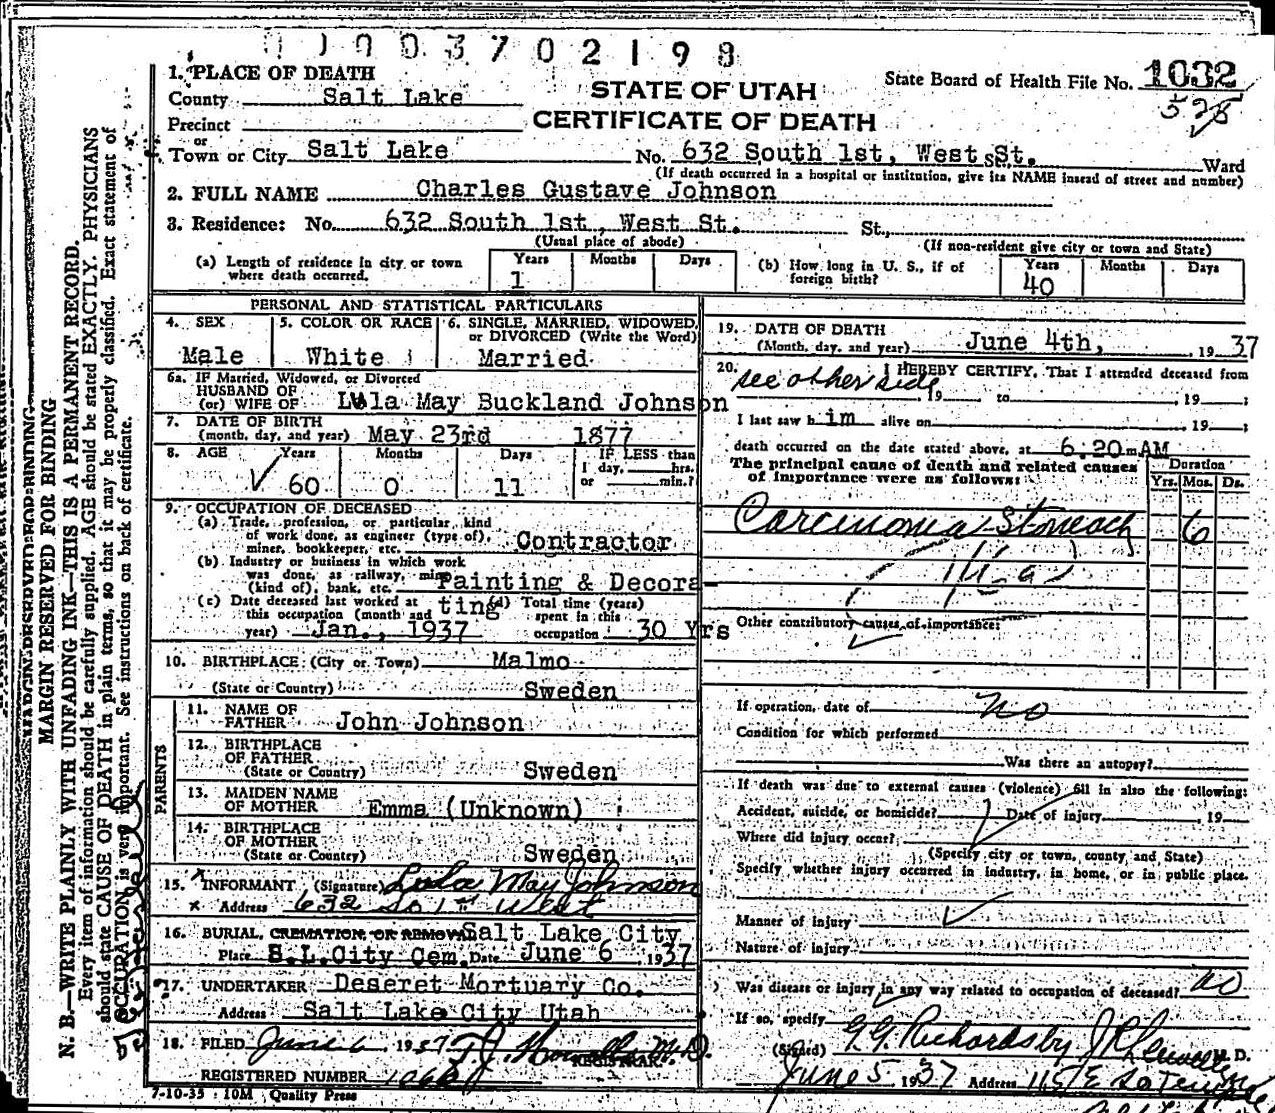 1. PLACE OF DEATH
STATE OF UTAH
CERTIFICATE OF DEATH
State Board of Health File No. 1032
County Salt Lake
Precinct
or
Town or City Salt Lake No. 632 South 1st, West St. Ward
(If death occurred in a hospital or institution, give its NAME instead of street and number)
2. FULL NAME Charles Gustave Johnson
3. Residence: No. 632 South 1st, West St. St.,
(Usual place of abode) (If non-resident give city or town and State)
(a) Length of residence in city or town where death occurred. Years 1 Months Days
(b) How long in U. S., if of foreign birth? Years 40 Months Days
PERSONAL AND STATISTICAL PARTICULARS
4. SEX Male
5. COLOR OR RACE White
6. SINGLE, MARRIED, WIDOWED, or DIVORCED (Write the Word) Married
6a. IF Married, Widowed, or Divorced
HUSBAND OF
(or) WIFE OF Lula May Buckland Johnson
7. DATE OF BIRTH
(month, day, and year) May 23rd 1877
8. AGE Years 60 Months 0 Days 11 IF LESS than 1 day, hrs. or min.?
9. OCCUPATION OF DECEASED
(a) Trade, profession, or particular kind
of work done, as engineer (type of),
miner, bookkeeper, etc. Contractor
(b) Industry or business in which work
was done, as railway, mine
(kind of), bank, etc. Painting & Decora-
ting
(c) Date deceased last worked at
this occupation (month and
year) Jan., 1937
(d) Total time (years)
spent in this
occupation 30 Yrs
10. BIRTHPLACE (City or Town) Malmo
(State or Country) Sweden
PARENTS
11. NAME OF
FATHER John Johnson
12. BIRTHPLACE
OF FATHER
(State or Country) Sweden
13. MAIDEN NAME
OF MOTHER Emma (Unknown)
14. BIRTHPLACE
OF MOTHER
(State or Country) Sweden
15. INFORMANT (Signature) Lula May Johnson
Address 632 So 1st West
16. BURIAL, CREMATION OR REMOVAL Salt Lake City
Place S.L.City Cem. Date June 6 1937
17. UNDERTAKER Deseret Mortuary Co.
Address Salt Lake City Utah
18. FILED June 6 1937 M.D.
REGISTRAR
REGISTERED NUMBER
7-10-35 10M Quality Press
19. DATE OF DEATH
(Month, day, and year) June 4th, 1937
20. I HEREBY CERTIFY, That I attended deceased from
see other side , 19 to , 19 ;
I last saw him alive on , 19 ;
death occurred on the date stated above, at 6:20 m AM
The principal cause of death and related causes
of importance were as follows:
Duration
Yrs. Mos. Ds.
Carcinoma Stomach 6
Other contributory causes of importance:
If operation, date of no
Condition for which performed
Was there an autopsy?
If death was due to external causes (violence) fill in also the following:
Accident, suicide, or homicide? Date of injury , 19
Where did injury occur?
(Specify city or town, county and State)
Specify whether injury occurred in industry, in home, or in public place.
Manner of injury
Nature of injury
Was disease or injury in any way related to occupation of deceased? no
If so, specify
(Signed) G.G. Richards by M. D.
June 5 1937 Address 115 E So Temple
MARGIN RESERVED FOR BINDING
N. B.—WRITE PLAINLY WITH UNFADING INK—THIS IS A PERMANENT RECORD.
Every item of information should be carefully supplied. AGE should be stated EXACTLY. PHYSICIANS
should state CAUSE OF DEATH in plain terms, so that it may be properly classified. Exact statement of
OCCUPATION is very important. See instructions on back of certificate.